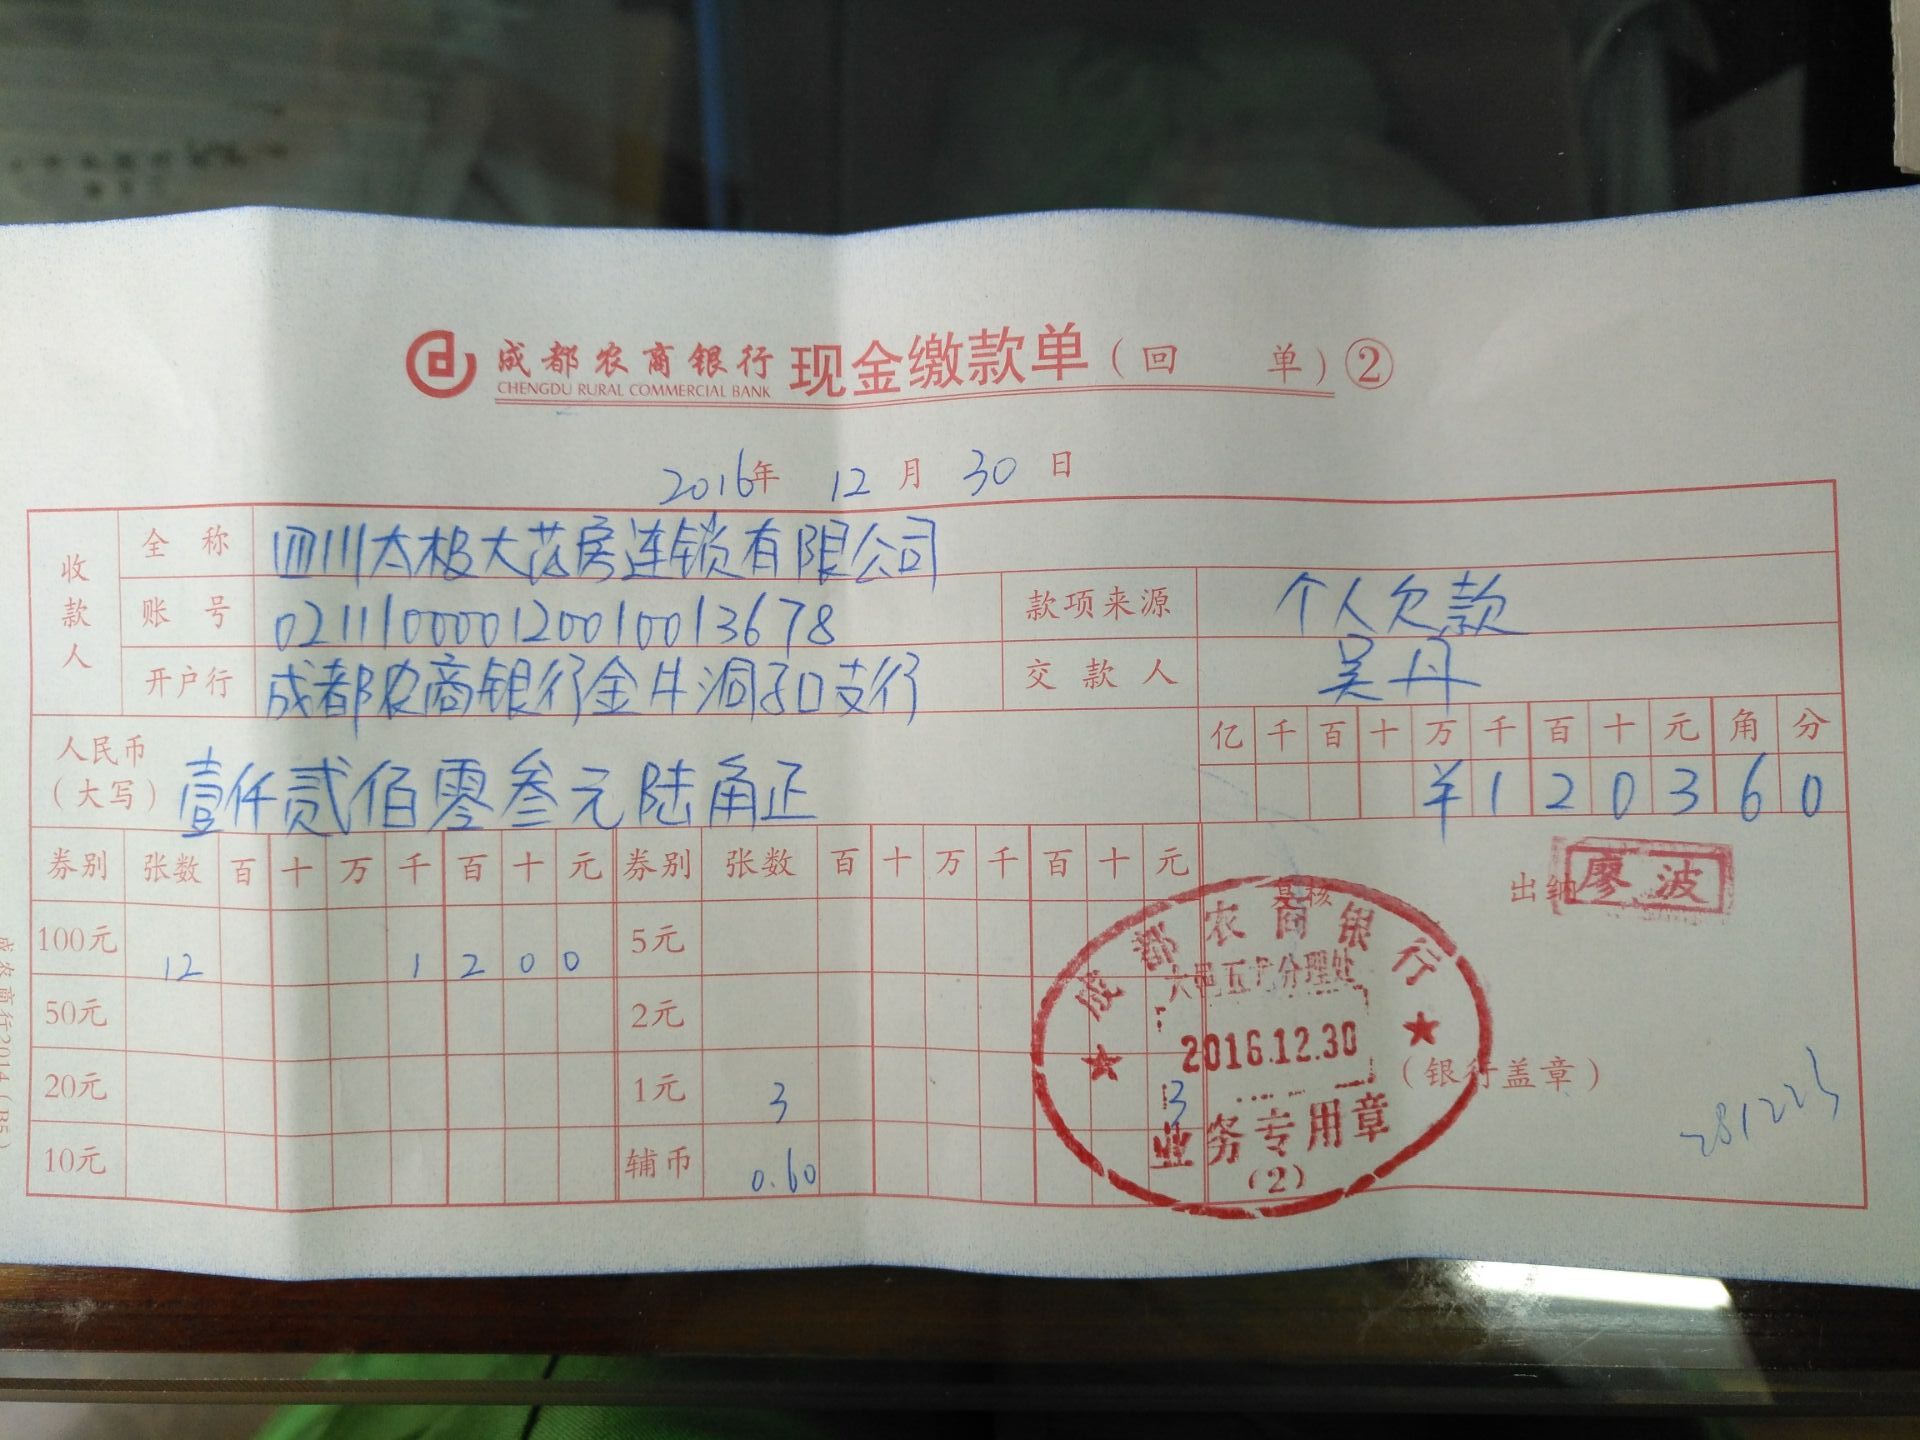 成都农商银行 现金缴款单（回 单）②
CHENGDU RURAL COMMERCIAL BANK
2016年 12月 30日
收款人 全称 四川太极大药房连锁有限公司
账号 021110000120010013678 款项来源 个人欠款
开户行 成都农商银行金牛洞子口支行 交款人 吴丹
人民币（大写） 壹仟贰佰零叁元陆角正
亿 千 百 十 万 千 百 十 元 角 分
¥ 1 2 0 3 6 0
券别 张数 百 十 万 千 百 十 元 券别 张数 百 十 万 千 百 十 元
100元 12 1 2 0 0 5元
50元 2元
20元 1元 3 3
10元 辅币 0.60
复核 出纳 廖波
成都农商银行
分理处
2016.12.30
业务专用章
(2)
（银行盖章）